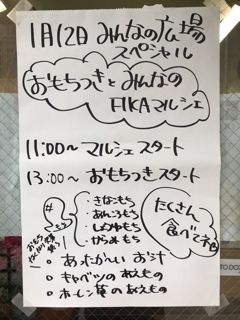 1月12日 みんなの広場
スペシャル
おもちつきとみんなの
FIKAマルシェ
11:00〜 マルシェスタート
13:00〜 おもちつきスタート
・きなこもち
・あんこもち
・しょうゆもち
・からみもち
たくさん
食べてネ
おもち
。あたたかい お汁
。キャベツの あえもの
。ホーレン草の あえもの